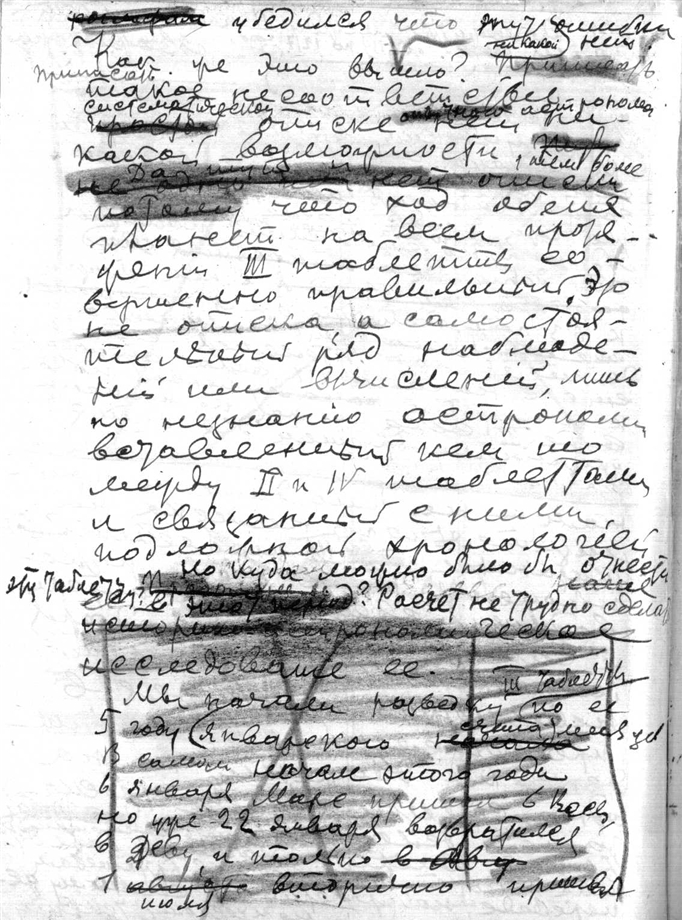 убедился что тут ошибки
никакой нет.
Как же это вышло? Приписать
такое несоответствие
систематической
описке опытного астронома нет ни-
какой возможности, тем более
потому что ход обеих
планет на всем протя-
жении III таблетки со-
вершенно правильный. Это
не описка, а самостоя-
тельный ряд наблюде-
ний или вычислений, лишь
по незнанию астрономии
вставленный кем то
между II и IV таблетками
и связанный с ними
подложной хронологией
Но куда можно было бы отнести
эту таблетку? Расчет не трудно сделать
историко-астрономическое
исследование ее.
Мы начали разведку по ее
III таблетки
5 году (январского
В самом начале этого года
6 января Марс пришел в Весы,
но уже 22 января возвратился
в Деву, и только
1 июля вторично пришел